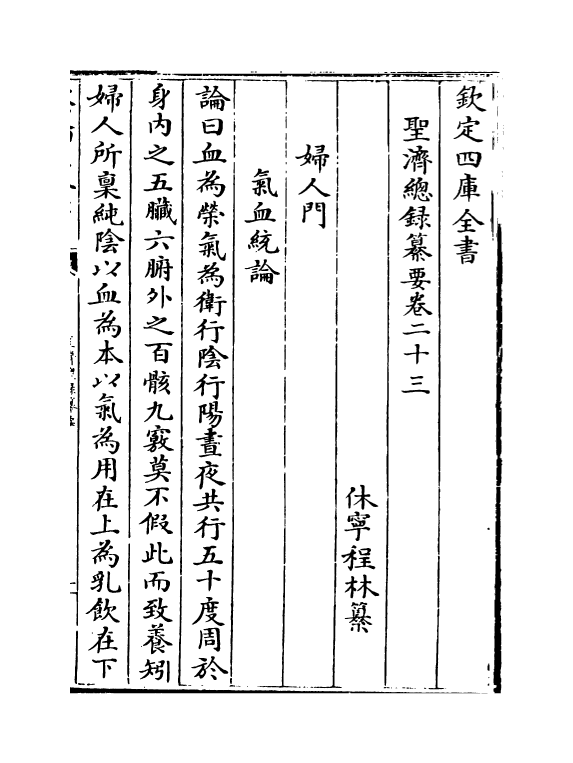 欽定四庫全書
聖濟總録纂要卷二十三
休寧程林纂
婦人門
氣血統論
論曰血為榮氣為衛行陰行陽晝夜共行五十度周於
身内之五臟六腑外之百骸九竅莫不假此而致養矧
婦人所稟純陰以血為本以氣為用在上為乳飲在下